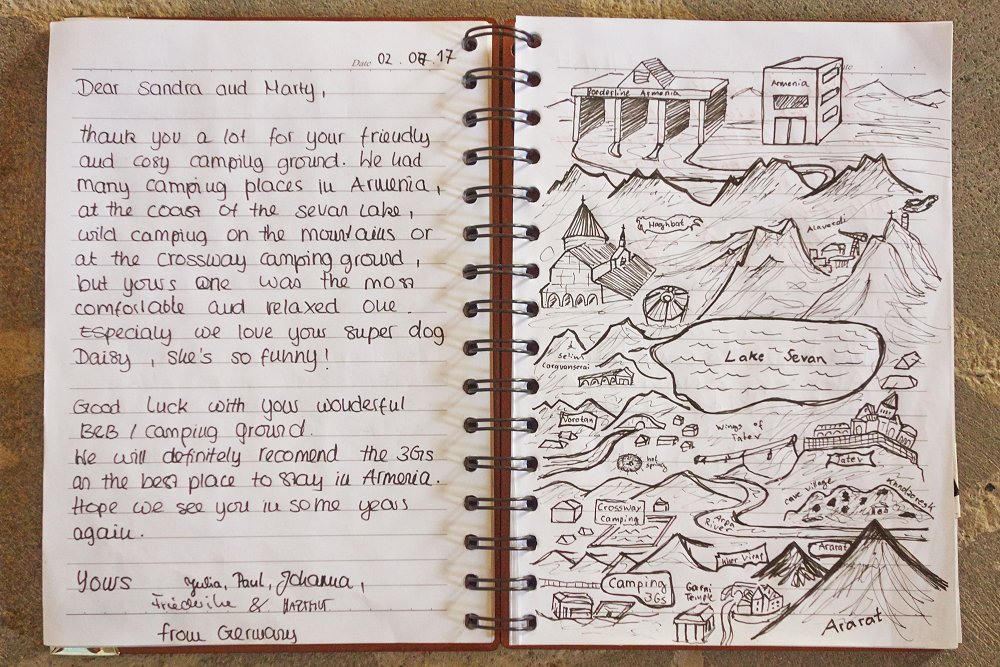 Date 02.07.17
Dear Sandra and Marty,
thank you a lot for your friendly
and cosy camping ground. We had
many camping places in Armenia,
at the coast of the sevan Lake,
wild camping on the mountains or
at the crossway camping ground,
but yours one was the most
comfortable and relaxed one.
Especialy we love your super dog
Daisy, she's so funny!
Good Luck with your wonderful
B&B / camping ground.
We will definitely recomend the 3Gs
an the best place to stay in Armenia.
Hope we see you in some years
again.
Yours Julia, Paul, Johanna,
Friederike & Hartmut
from Germany
Date
Borderline Armenia
Armenia
Haghbat
Alaverdi
Lake Sevan
Selim
Caravanserai
Vorotan
Wings of
Tatev
hot
springs
Tatev
cave village
Kandzoresk
Crossway
Camping
Arpa
River
Khor Virap
Ararat
Camping
3Gs
Garni
Temple
Ararat